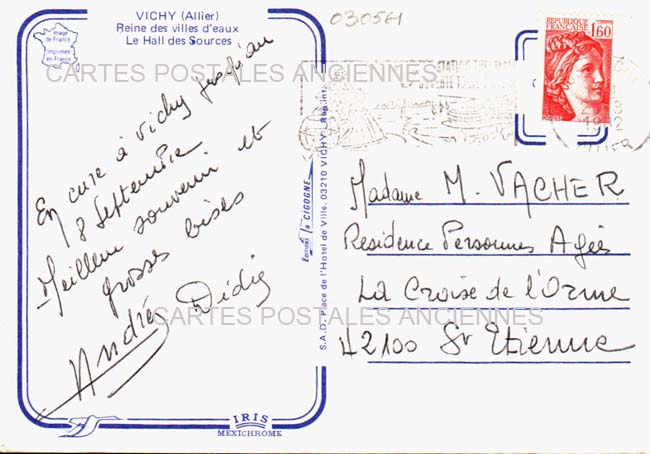 VICHY (Allier)
Reine des villes d'eaux
Le Hall des Sources
Image de France
Imprimée en France
030561
REPUBLIQUE FRANÇAISE
1,60
POSTES
1982
ALLIER
CARTES POSTALES ANCIENNES
En cure à Vichy jusqu'au
8 Septembre
Meilleur souvenir et
grosses bises
Andrée Didier
Editions la CIGOGNE
S.A.D. Place de l'Hotel de Ville. 03210 VICHY
Madame M. VACHER
Residence Personnes Agées
La Croise de l'Orme
42100 St Etienne
CARTES POSTALES ANCIENNES
IRIS
MEXICHROME